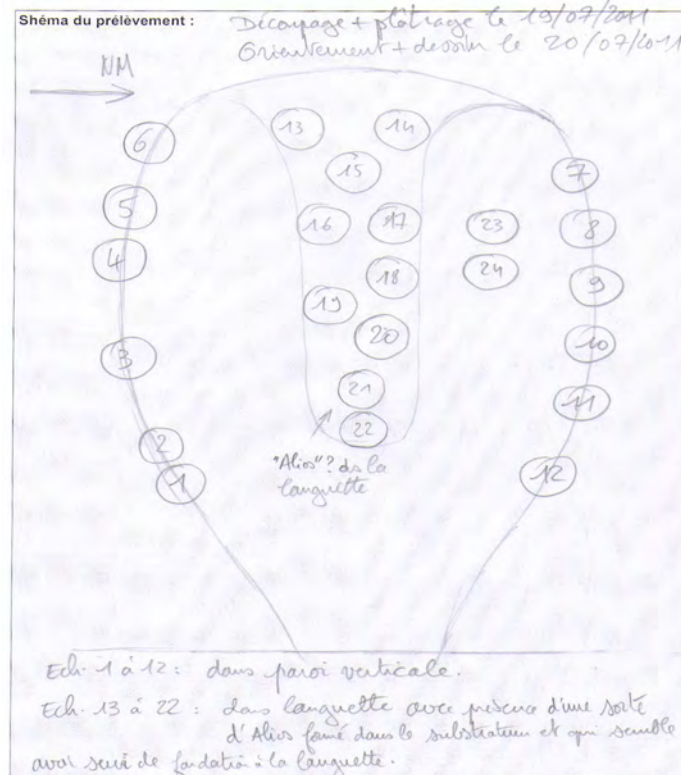 Shéma du prélèvement :
Découpage + plâtrage le 19/07/2011
Orientement + dessin le 20/07/2011
NM
6
13
14
5
15
7
16
17
23
8
4
18
24
9
19
3
20
10
21
11
2
22
1
12
"Alios"? ds la
languette
Ech. 1 à 12 : dans paroi verticale.
Ech. 13 à 22 : dans languette avec présence d'une sorte
d'Alios formé dans le substratum et qui semble
avoir servi de fondation à la languette.